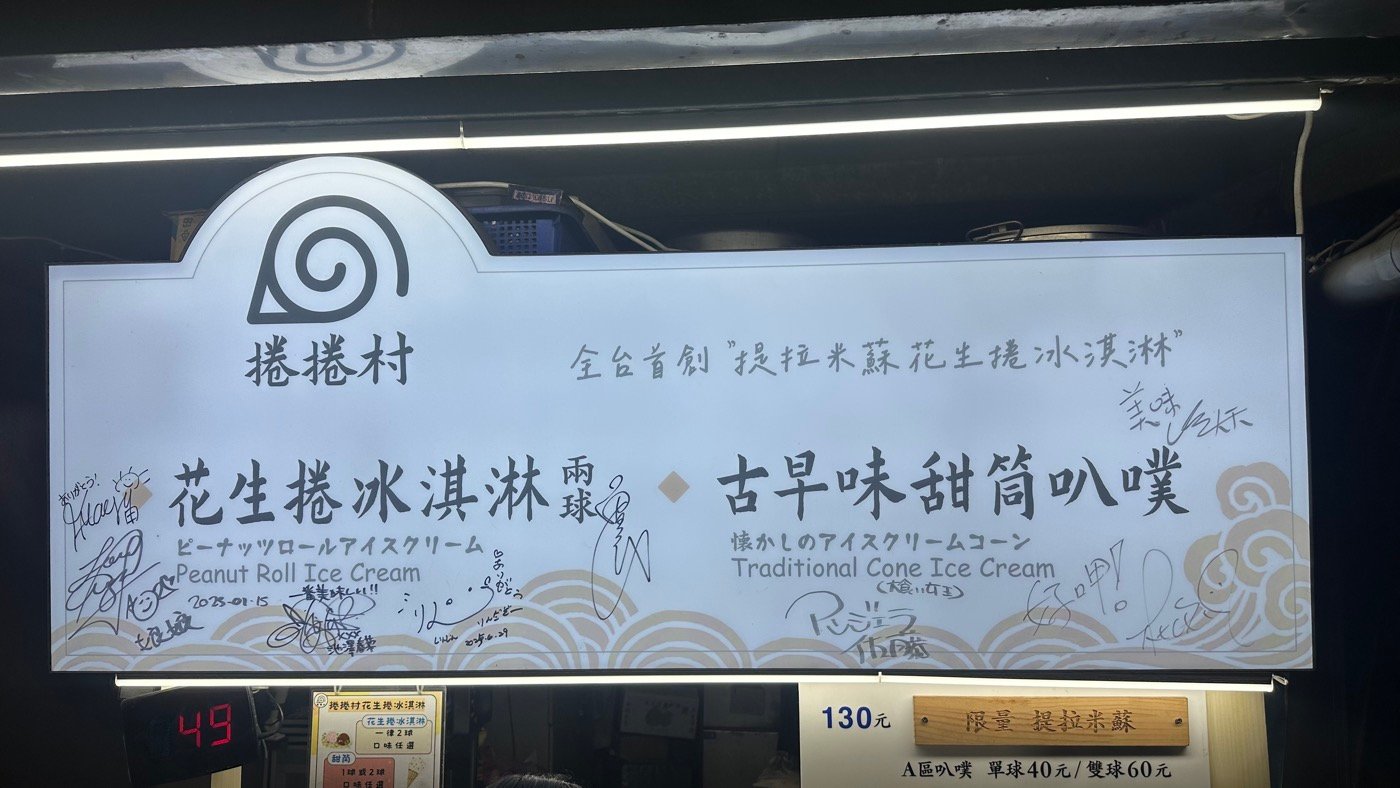 捲捲村
全台首創"提拉米蘇花生捲冰淇淋"
美味
花生捲冰淇淋 兩球
ピーナッツロールアイスクリーム
Peanut Roll Ice Cream
古早味甜筒叭噗
懐かしのアイスクリームコーン
Traditional Cone Ice Cream
ありがとう!
2025-01-15
一番美味しい!!
ありがとう
2025.6.29
(大食い女王)
アンジェラ
佐藤
好呷!
49
捲捲村花生捲冰淇淋
花生捲冰淇淋
一律2球
口味任選
甜筒
1球或2球
口味任選
130元
限量 提拉米蘇
A區叭噗 單球40元/雙球60元